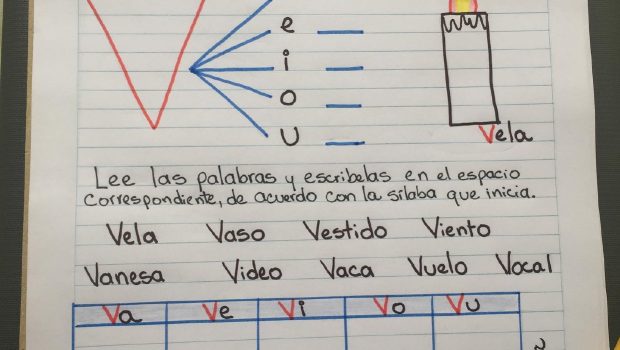 e
i
o
u
Vela
Lee las palabras y escribelas en el espacio
correspondiente, de acuerdo con la sílaba que inicia.
Vela Vaso Vestido Viento
Vanesa Video Vaca Vuelo Vocal
Va Ve Vi Vo Vu